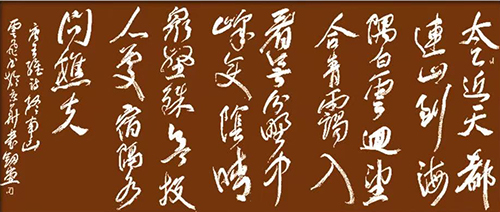 太乙近天都
連山到海
隅白雲迴望
合青靄入
看無分野中
峰变陰晴
衆壑殊欲投
人處宿隔水
問樵夫
唐王維詩終南山
雲飛